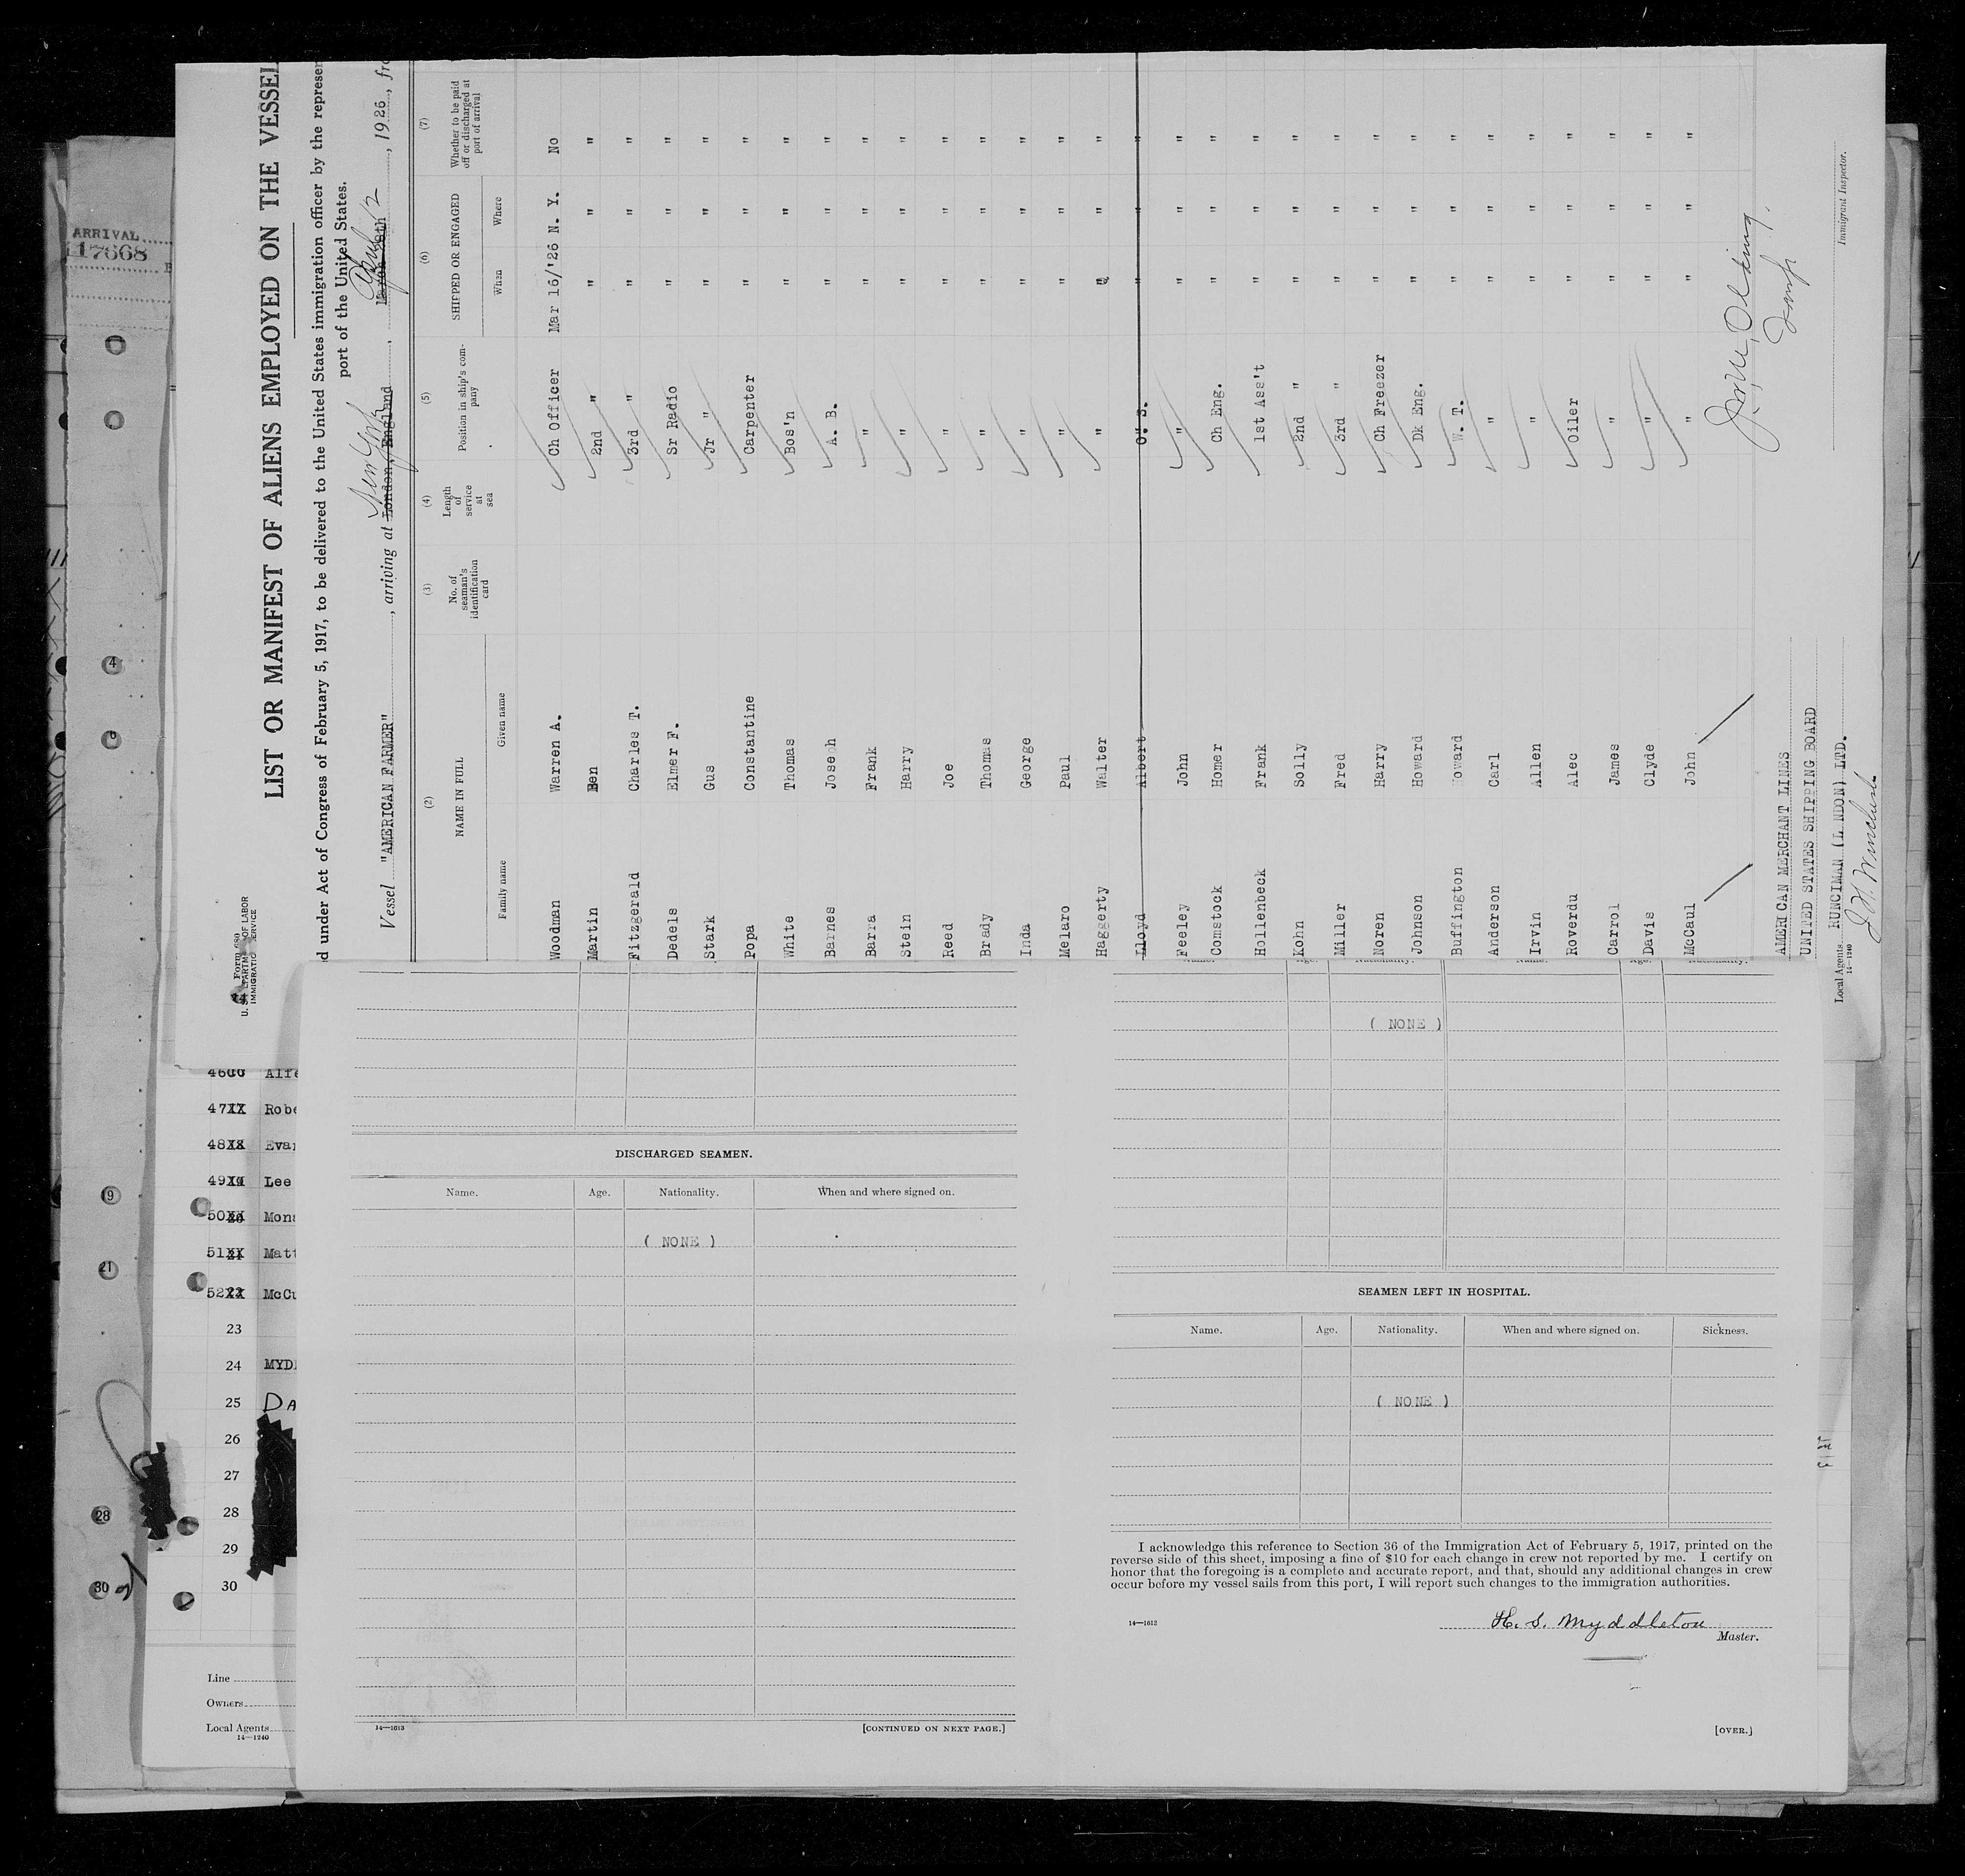 ARRIVAL
17668
Form 680
U. S. DEPARTMENT OF LABOR
IMMIGRATION SERVICE
LIST OR MANIFEST OF ALIENS EMPLOYED ON THE VESSEL
d under Act of Congress of February 5, 1917, to be delivered to the United States immigration officer by the represen
port of the United States.
Vessel "AMERICAN FARMER", arriving at London, England New York, March 28th April 12, 1926, fro
(2) (3) (4) (5) (6) (7)
NAME IN FULL
Family name Given name
No. of seaman's identification card
Length of service at sea
Position in ship's company
SHIPPED OR ENGAGED
When Where
Whether to be paid off or discharged at port of arrival
Woodman Warren A. Ch Officer Mar 16/'26 N. Y. No
Martin Ben 2nd " " " "
Fitzgerald Charles T. 3rd " " " "
Dedels Elmer F. Sr Radio " " "
Stark Gus Jr " " " "
Popa Constantine Carpenter " " "
White Thomas Bos'n " " "
Barnes Joseph A. B. " " "
Barra Frank " " " "
Stein Harry " " " "
Reed Joe " " " "
Brady Thomas " " " "
Inda George " " " "
Melaro Paul " " " "
Haggerty Walter " " " "
Lloyd Albert O. S. " " "
Feeley John " " " "
Comstock Homer Ch Eng. " " "
Hollenbeck Frank 1st Ass't " " "
Kohn Solly 2nd " " " "
Miller Fred 3rd " " " "
Noren Harry Ch Freezer " " "
Johnson Howard Dk Eng. " " "
Buffington Howard W. T. " " "
Anderson Carl " " " "
Irvin Allen " " " "
Roverdu Alec Oiler " " "
Carrol James " " " "
Davis Clyde " " " "
McCaul John " " " "
AMERICAN MERCHANT LINES
UNITED STATES SHIPPING BOARD
Local Agents RUNCIMAN (L NDON) LTD.
14—1240
Immigrant Inspector.
46 Alfe
47 Robe
48 Evan
49 Lee
50 Mons
51 Matt
52 McCu
23
24 MYD
25 DA
26
27
28
29
30
Line
Owners
Local Agents
14—1240
4
9
19
21
28
30
DISCHARGED SEAMEN.
Name. Age. Nationality. When and where signed on.
( NONE )
14—1613
[CONTINUED ON NEXT PAGE.]
Name. Age. Nationality. Name. Age. Nationality.
( NONE )
SEAMEN LEFT IN HOSPITAL.
Name. Age. Nationality. When and where signed on. Sickness.
( NONE )
I acknowledge this reference to Section 36 of the Immigration Act of February 5, 1917, printed on the
reverse side of this sheet, imposing a fine of $10 for each change in crew not reported by me. I certify on
honor that the foregoing is a complete and accurate report, and that, should any additional changes in crew
occur before my vessel sails from this port, I will report such changes to the immigration authorities.
14—1613
H. S. Myddleton
Master.
[OVER.]